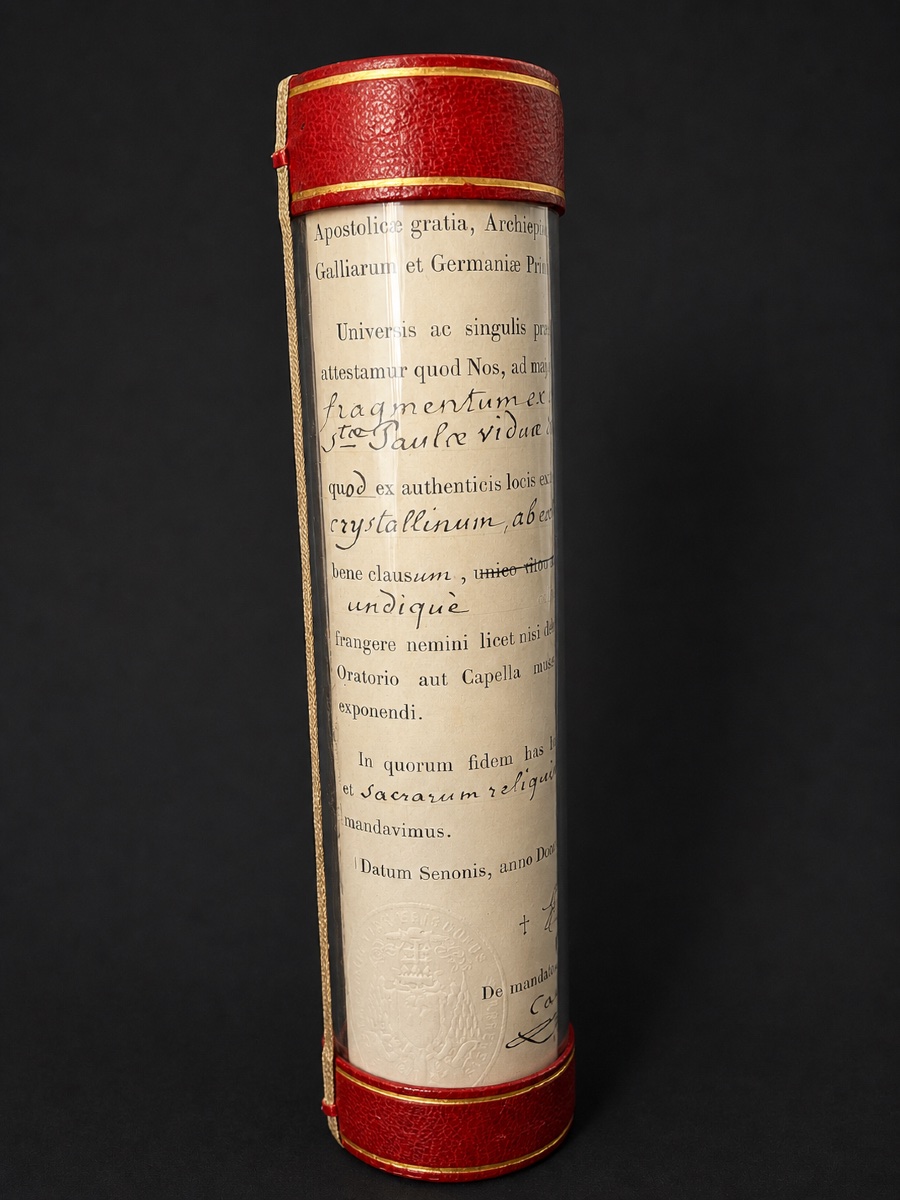 Apostolicæ gratia, Archiepi
Galliarum et Germaniæ Pri
Universis ac singulis præ
attestamur quod Nos, ad maj
fragmentum ex
stæ Paulæ viduæ
quod ex authenticis locis ex
crystallinum, ab
bene clausum, unico
undiquè
frangere nemini licet nisi de
Oratorio aut Capella
exponendi.
In quorum fidem has
et sacrarum reliqui
mandavimus.
Datum Senonis, anno Do
†
De mandato